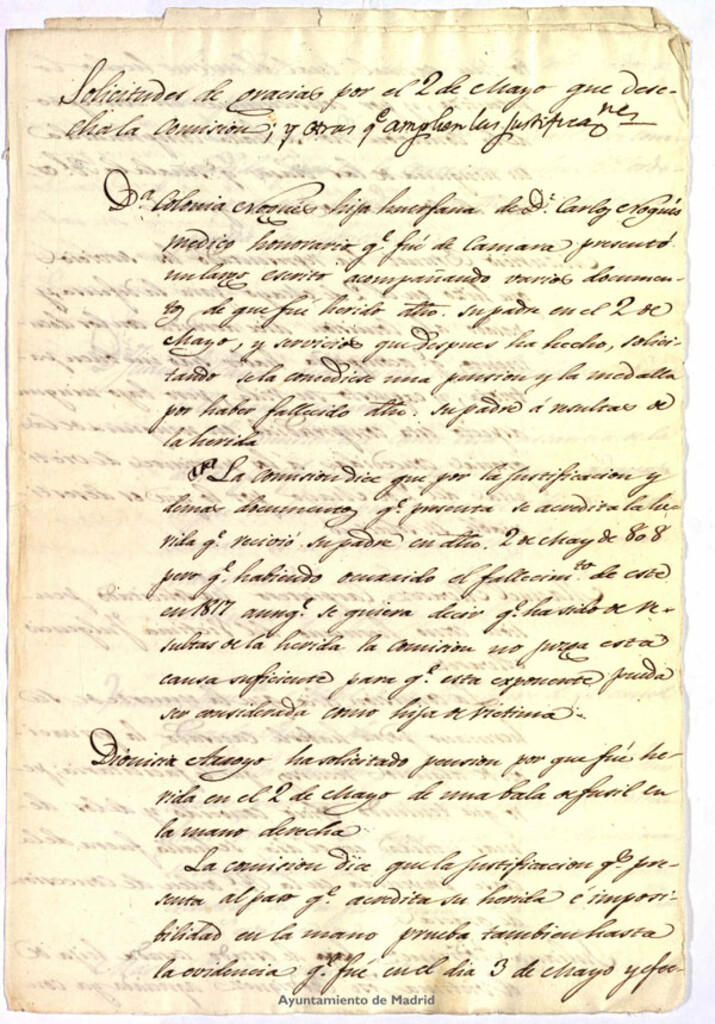 Solicitudes de gracias por el 2 de Mayo que dese-
cha la Comision; y otras q.e amplien las justificanes
D.a Colonia Nogués hija huerfana de D.n Carlos Nogués
medico honorario q.e fué de Camara presentó
un largo escrito acompañando varios documen-
tos de que fué herido dho. su padre en el 2 de
Mayo, y servicios que despues ha hecho, solici-
tando se la concediese una pension y la medalla
por haber fallecido dho. su padre á resultas de
la herida
La Comision dice que por la justificacion y
demas documentos q.e presenta se acredita la he-
rida q.e recivió su padre en dho. 2 de May de 808
pero q.e habiendo ocurrido el fallecim.to de este
en 1817 aunq.e se quiera decir q.e ha sido de re-
sultas de la herida la comision no juzga esta
causa suficiente para q.e esta exponente pueda
ser considerada como hija de victima.
Dionisia Arroyo ha solicitado pension por que fué he-
rida en el 2 de Mayo de una bala de fusil en
la mano derecha
La comision dice que la justificacion q.e pre-
senta al paso q.e acredita su herida é imposi-
bilidad en la mano prueba tambien hasta
la evidencia q.e fué en el dia 3 de Mayo y fue-
Ayuntamiento de Madrid